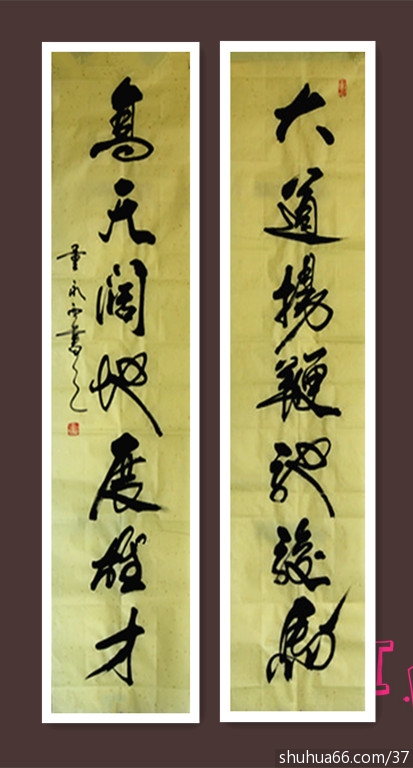 大道揚鞭馳駿馬
高天阔地展雄才
shuhua66.com/37